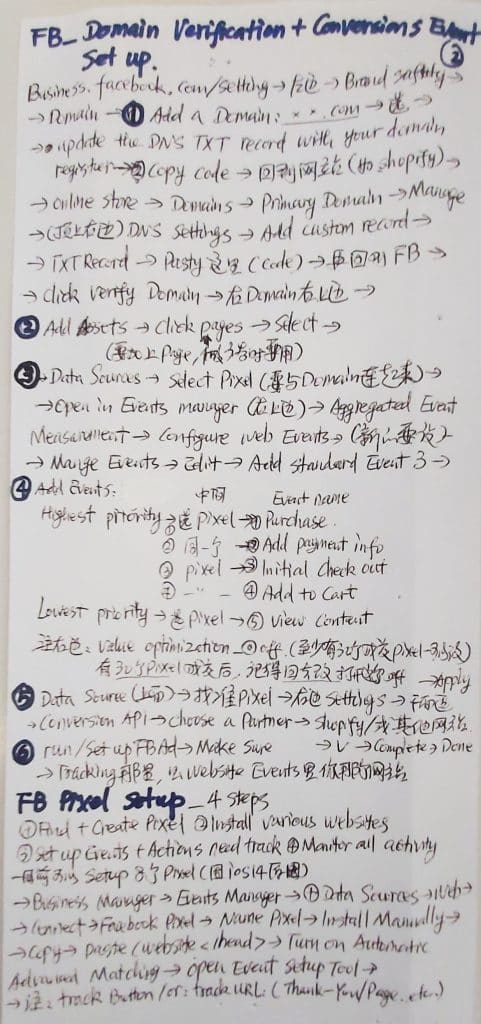 FB_ Domain Verification + Conversions Event
Set up. ②
Business.facebook.com/setting → 左边 → Brand saftty →
→ Domain → ① Add a Domain: x x .com → 选 →
→ update the DNS TXT record with your domain
register → ② Copy code → 回到网站 (如 shopify) →
→ online store → Domains → Primary Domain → Manage
→ (顶上右边) DNS Settings → Add custom record →
→ TXT Record → Pasty 这里 (code) → 再回到 FB →
→ click verify Domain → 在 Domain 右上边 →
② Add Assets → click pages → Select →
(要加上 Page, 要用)
③ → Data Sources → Select Pixel (要与 Domain 连起来) →
→ Open in Events manager (右上边) → Aggregated Event
Measurment → Configure web Events →
→ Mange Events → Edit → Add standard Event 3 →
④ Add Events: 中间 Event name
Highest priority → 选 pixel → ① Purchase.
② 同一个 → ② Add payment info
③ pixel → ③ Initial check out
〃 - ④ Add to Cart
Lowest priority → 选 pixel → ⑤ View Content
注右边: Value optimization _ off. (至少有30个成交 pixel
有30个 pixel 成交后, 记得回去改 off → Apply
⑤ Data Source (上面) → 找准 Pixel → 右边 settings →
→ Conversion API → choose a Partner → shopify/或其他网站
⑥ run/Set up FB Ad → Make Sure → √ → Complete → Done
→ Tracking 那里, Website Events 是你那个网站
FB Pixel Setup _ 4 steps
① Find + Create Pixel ② Install various websites
③ Set up Events + Actions need track ④ Monitor all activity
Setup 8个 Pixel (因 ios14
→ Business Manager → Events Manager → ⊕ Data Sources → Web →
→ Connect → Facebook Pixel → Name Pixel → Install Manually →
→ Copy → paste (website </head> → Turn on Automatic
Advanced Matching → open Event Setup Tool →
→ 注: track Button / or: track URL: (Thank-You/Page. etc.)